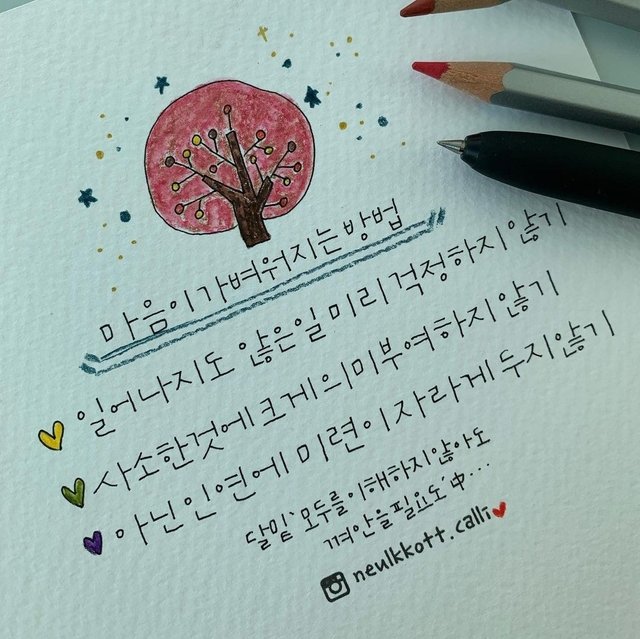 마음이 가벼워지는 방법
일어나지도 않은일 미리 걱정하지 않기
사소한것에 크게 의미부여하지 않기
아닌 인연에 미련이 자라게 두지 않기
달밑`모두를 이해하지 않아도
껴안을 필요도'中...
neulkkott.calli